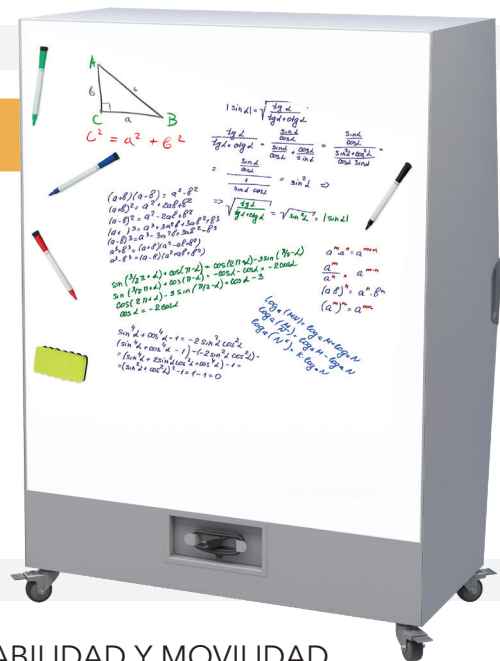 A
b
c
C
a
B
c² = a² + b²
|sinα| = √(tgα / (tgα + ctgα))
tgα / (tgα + ctgα) = (sinα / cosα) / (sinα / cosα + cosα / sinα) = (sinα / cosα) / ((sin²α + cos²α) / (cosα sinα)) =
= (sinα / cosα) / (1 / (sinα cosα)) = sin²α ⇒
⇒ √(tgα / (tgα + ctgα)) = √(sin²α) = |sinα|
(a+b)(a-b) = a² - b²
(a+b)² = a² + 2ab + b²
(a-b)² = a² - 2ab + b²
(a+ )³ = a³ + 3a²b + 3ab² + b³
(a-b)³ = a³ - 3a²b + 3ab² - b³
a³+b³ = (a+b)(a²-ab+b²)
a³-b³ = (a-b)(a²+ab+b²)
sin(3/2π+α) + cos(π-α) = cos(2π+α) - 3sin(π/2-α)
sin(3/2π+α) + cos(π-α) = -cosα - cosα = -2cosα
cos(2π+α) - 3 sin(π/2-α) = cosα - 3
cosα = -2cosα
aᵐ·aⁿ = aᵐ⁺ⁿ
aᵐ / aⁿ = aᵐ⁻ⁿ
(ab)ⁿ = aⁿ·bⁿ
(aᵐ)ⁿ = aᵐⁿ
logₐ(MN) = logₐM + logₐN
logₐ(M/N) = logₐM - logₐN
logₐ(Nᵏ) = k·logₐN
sin⁴α + cos⁴α - 1 = -2sin²α cos²α
(sin⁴α + cos⁴α - 1) - (-2sin²α cos²α) =
= (sin⁴α + 2sin²α cos²α + cos⁴α) - 1 =
= (sin²α + cos²α)² - 1 = 1 - 1 = 0
ABILIDAD Y MOVILIDAD